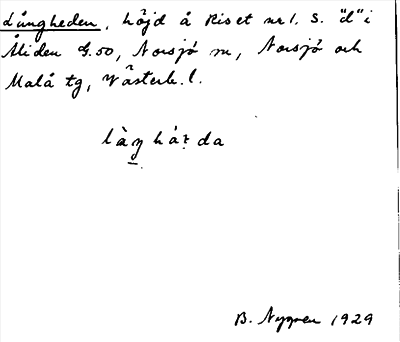 Långheden, höjd å Riset nr 1. S. "d" i
Åliden G.50, Norsjö sn, Norsjö och
Malå tg, Västerb. l.
làŋhá?da
B. Nygren 1929